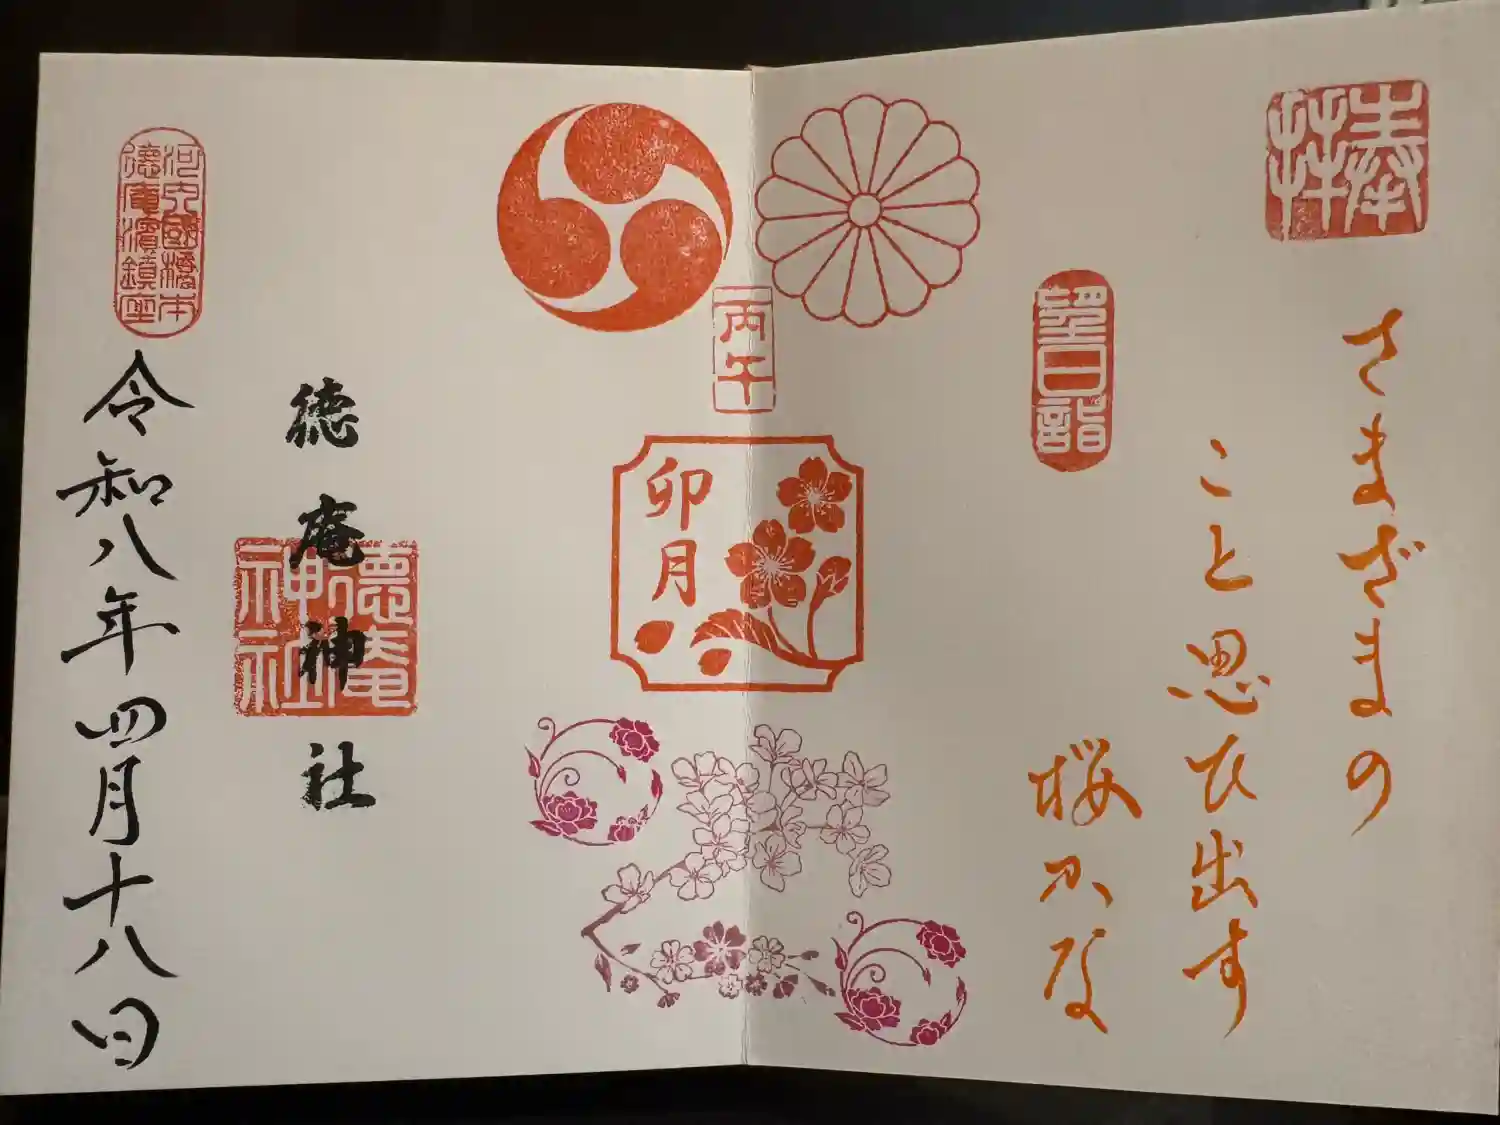 奉拝
さまざまの
こと思ひ出す
桜かな
朔日詣
丙午
卯月
徳庵神社
徳庵
神社
河内國橋本
徳庵濱鎮座
令和八年四月十八日